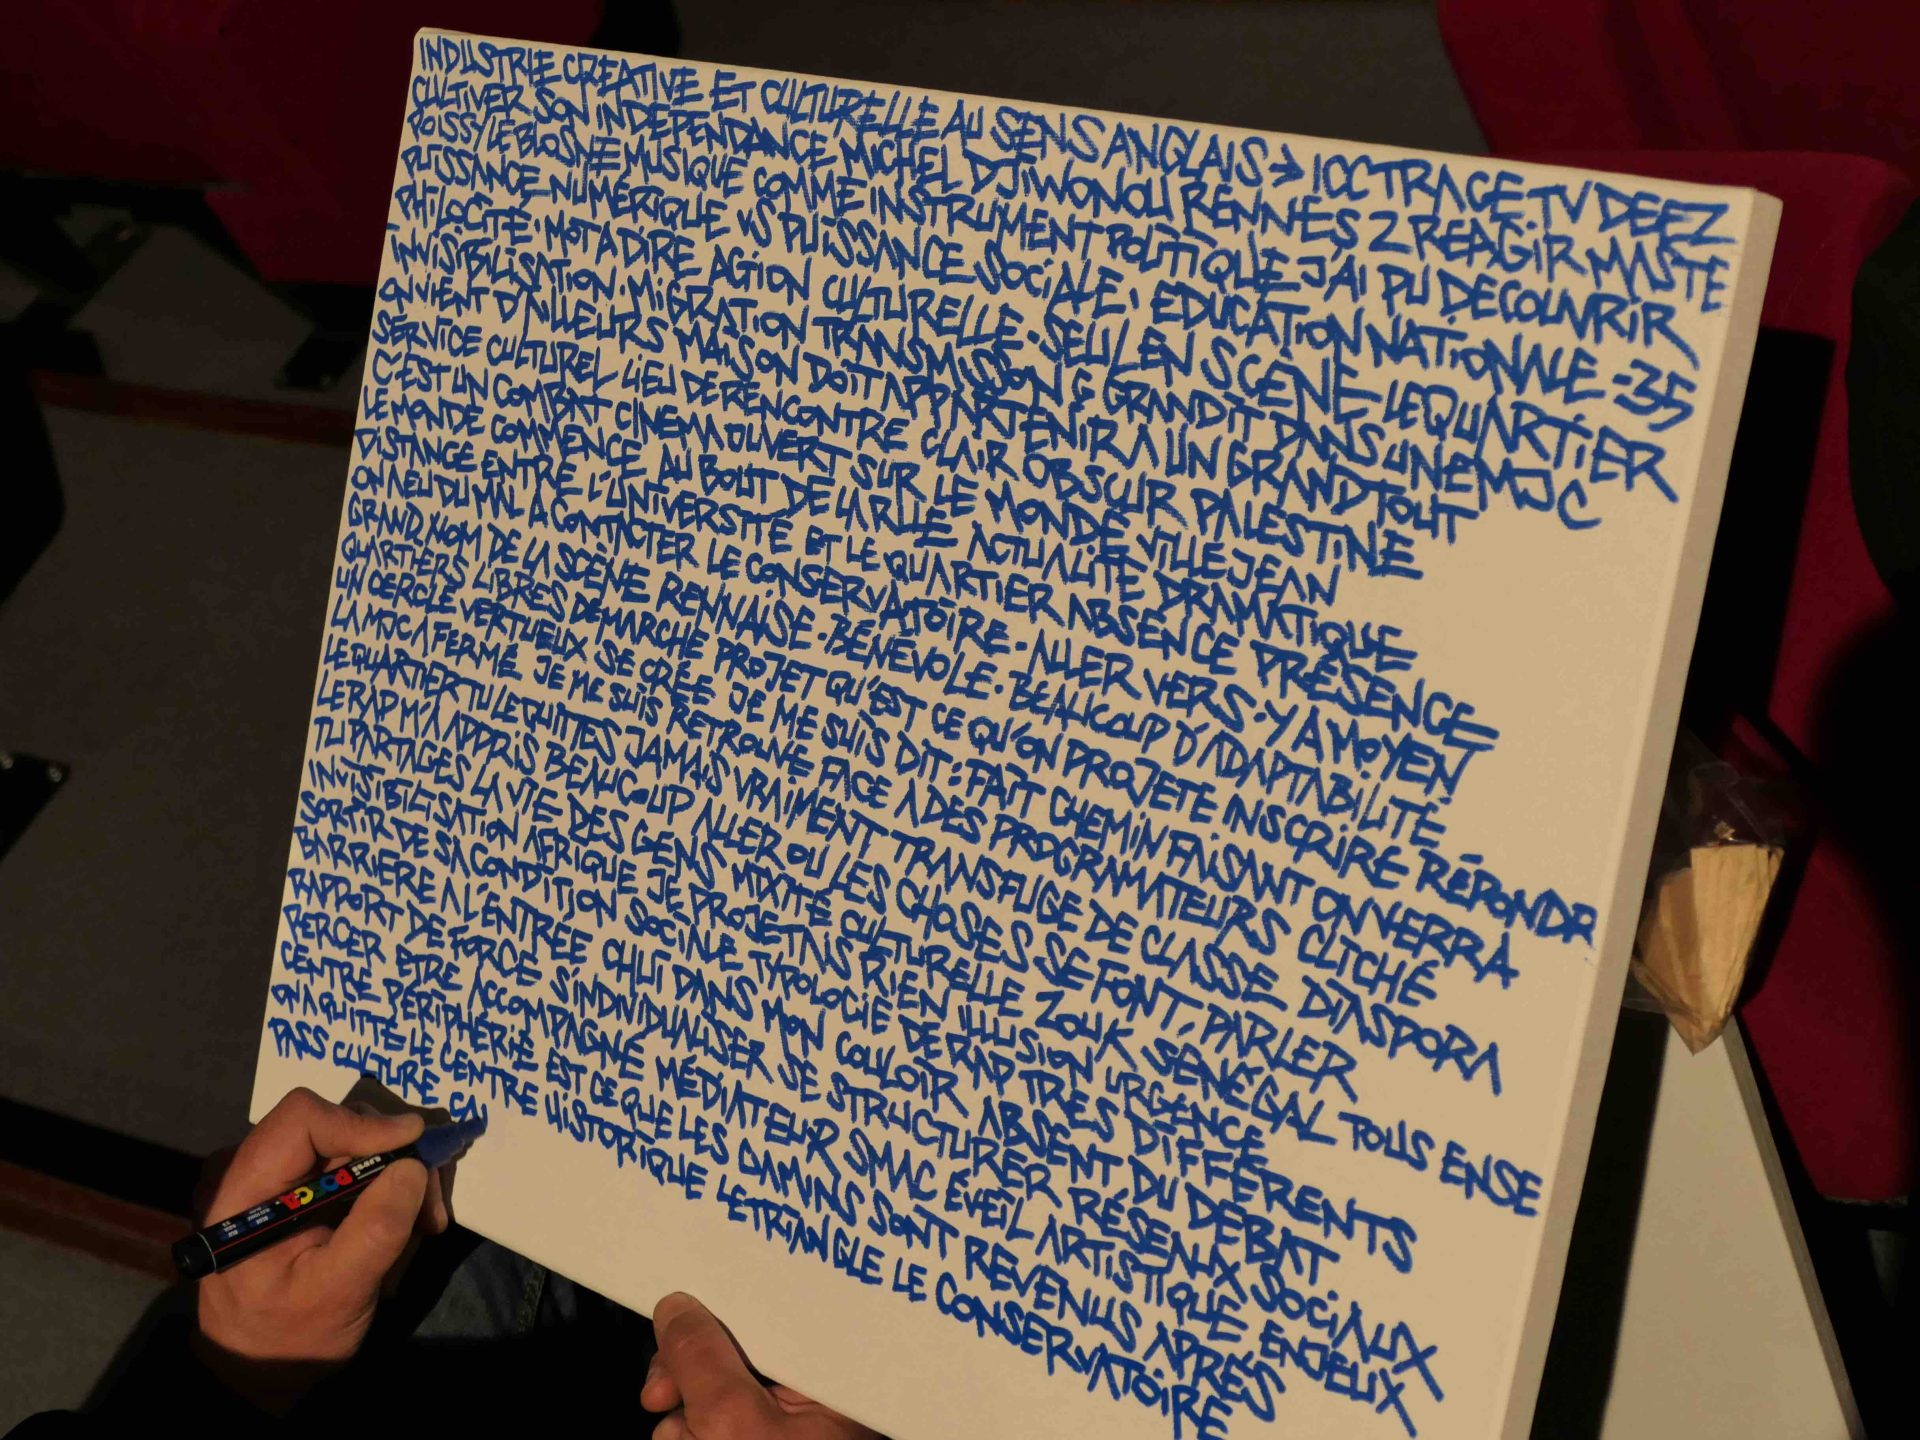 INDUSTRIE CREATIVE ET CULTURELLE AU SENS ANGLAIS → ICC TRACE TV DEEZ
CULTIVER SON INDEPENDANCE MICHEL DJIWONOU RENNES 2 REAGIR MASTE
POISSY LE BLOSNE MUSIQUE COMME INSTRUMENT POLITIQUE J'AI PU DECOUVRIR
PUISSANCE NUMÉRIQUE VS PUISSANCE SOCIALE. EDUCATION NATIONALE -35
PHILOCITÉ. MOT A DIRE ACTION CULTURELLE. SEUL EN SCÈNE LE QUARTIER
INVISIBILISATION. MIGRATION TRANSMISSON & GRANDIT DANS UNE MJC
ON VIENT D'AILLEURS MAISON DOIT APPARTENIR A UN GRAND TOUT
SERVICE CULTUREL LIEU DE RENCONTRE CLAIR OBSCUR PALESTINE
C'EST UN COMBAT CINEMA OUVERT SUR LE MONDE VILLEJEAN
LE MONDE COMMENCE AU BOUT DE LA RUE ACTUALITÉ DRAMATIQUE
DISTANCE ENTRE L'UNIVERSITÉ ET LE QUARTIER ABSENCE PRÉSENCE
ON A EU DU MAL A CONTACTER LE CONSERVATOIRE. ALLER VERS. Y A MOYEN
GRAND NOM DE LA SCÈNE RENNAISE. BÉNÉVOLE. BEAUCOUP D'ADAPTABILITÉ
QUARTIERS LIBRES DEMARCHE PROJET QU'EST CE QU'ON PROJETE INSCRIRE RÉPONDR
UN CERCLE VERTUEUX SE CRÉE JE ME SUIS DIT : FAIT CHEMIN FAISANT ON VERRA
LA MJC A FERMÉ JE ME SUIS RETROUVÉ FACE A DES PROGRAMATEURS CLICHÉ
LE QUARTIER TU LE QUITTES JAMAIS VRAIMENT TRANSFUGE DE CLASSE DIASPORA
LE RAP M'A APPRIS BEAUCOUP ALLER OU LES CHOSES SE FONT, PARLER
TU PARTAGES LA VIE DES GENS MIXITÉ CULTURELLE ZOUK SENÉGAL TOUS ENSE
INVISIBILISATION AFRIQUE JE PROJETAIS RIEN ILLUSION URGENCE
SORTIR DE SA CONDITION SOCIALE TYPOLOGIE DE RAP TRES DIFFÉRENTS
BARRIERE A L'ENTRÉE CHUT DANS MON COULOIR ABSENT DU DEBAT
RAPPORT DE FORCE S'INDIVIDUALISER SE STRUCTURER RÉSEAUX SOCIAUX
PERCER ETRE ACCOMPAGNÉ MÉDIATEUR SMAC ÉVEIL ARTISTIQUE ENJEUX
CENTRE PERIPHERIE EST CE QUE LES GAMINS SONT REVENUS APRÉS
ON A QUITTÉ LE CENTRE HISTORIQUE LE TRIANGLE LE CONSERVATOIRE
PASS CULTURE CA
uni POSCA